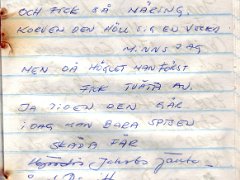 OCH FICK SÅ NÄRING.
KORVEN DEN HÖLL SIG EN VECKA
MINNS JAG
MEN DÅ HÖGUT MAN FÖRST
FICK TVÄTTA AN.
JA TIDEN DEN GÅR
IDAG KAN BARA SPISEN
SKÅDA DÄR